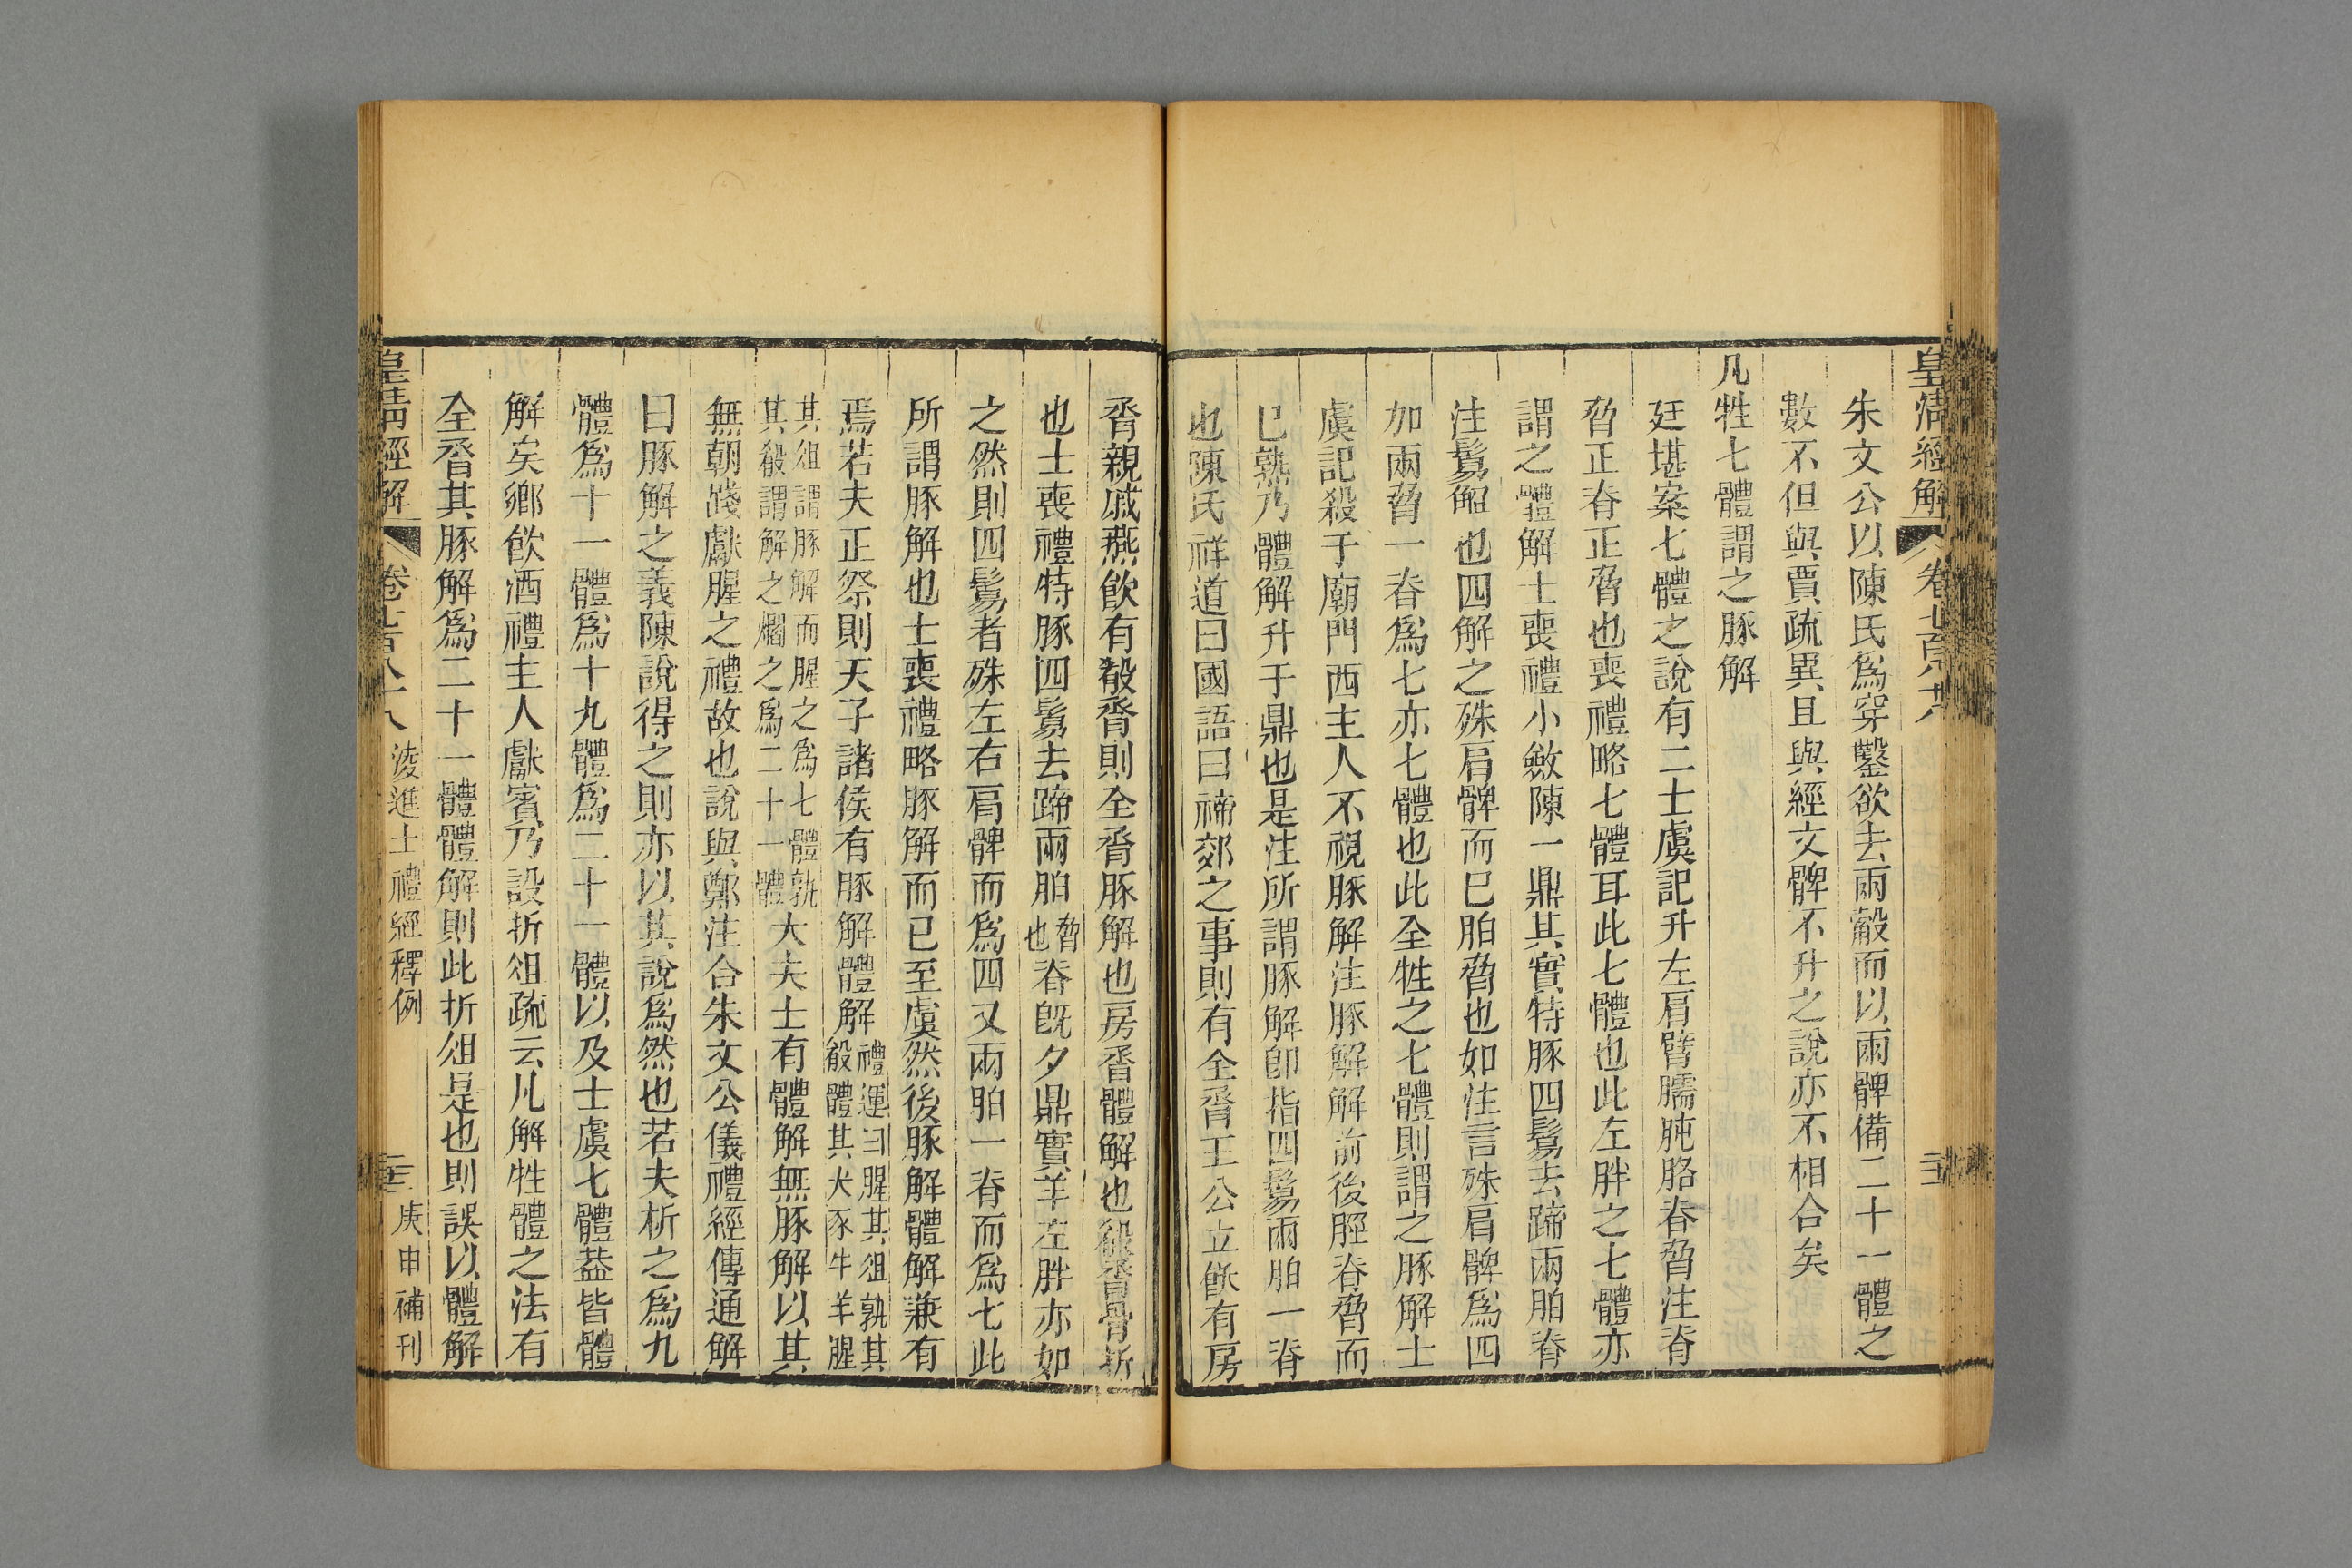 皇清經解 卷七百八十八
朱文公以陳氏爲穿鑿欲去兩觳而以兩髀備二十一體之
數不但與賈疏異且與經文髀不升之說亦不相合矣
凡牲七體謂之豚解
廷堪案七體之說有二士虞記升左肩臂臑肫胳脊脅注脊
脅正脊正脅也喪禮略七體耳此七體也此左胖之七體亦
謂之體解士喪禮小斂陳一鼎其實特豚四鬄去蹄兩胉脊
注鬄解也四解之殊肩髀而已胉脅也如注言殊肩髀爲四
加兩脅一脊爲七亦七體也此全牲之七體則謂之豚解士
虞記殺于廟門西主人不視豚解注豚解解前後脛脊脅而
已熟乃體解升于鼎也是注所謂豚解卽指四鬄兩胉一脊
也陳氏祥道曰國語曰禘郊之事則有全脀王公立飫有房
脀親戚燕飮有殽脀則全脀豚解也房脀體解也殽脀骨折
也士喪禮特豚四鬄去蹄兩胉脅也脊旣夕鼎實羊左胖亦如
之然則四鬄者殊左右肩髀而爲四又兩胉一脊而爲七此
所謂豚解也士喪禮略豚解而已至虞然後豚解體解兼有
焉若夫正祭則天子諸侯有豚解體解禮運曰腥其俎孰其殽體其犬豕牛羊腥
其俎謂豚解而腥之爲七體孰其殽謂解之爓之爲二十一體大夫士有體解無豚解以其
無朝踐獻腥之禮故也說與鄭注合朱文公儀禮經傳通解
曰豚解之義陳說得之則亦以其說爲然也若夫析之爲九
體爲十一體爲十九體爲二十一體以及士虞七體葢皆體
解矣鄉飮酒禮主人獻賓乃設折俎疏云凡解牲體之法有
全脀其豚解爲二十一體體解則此折俎是也則誤以體解
皇淸經解 卷七百八十八 淩進士禮經釋例 庚申補刊